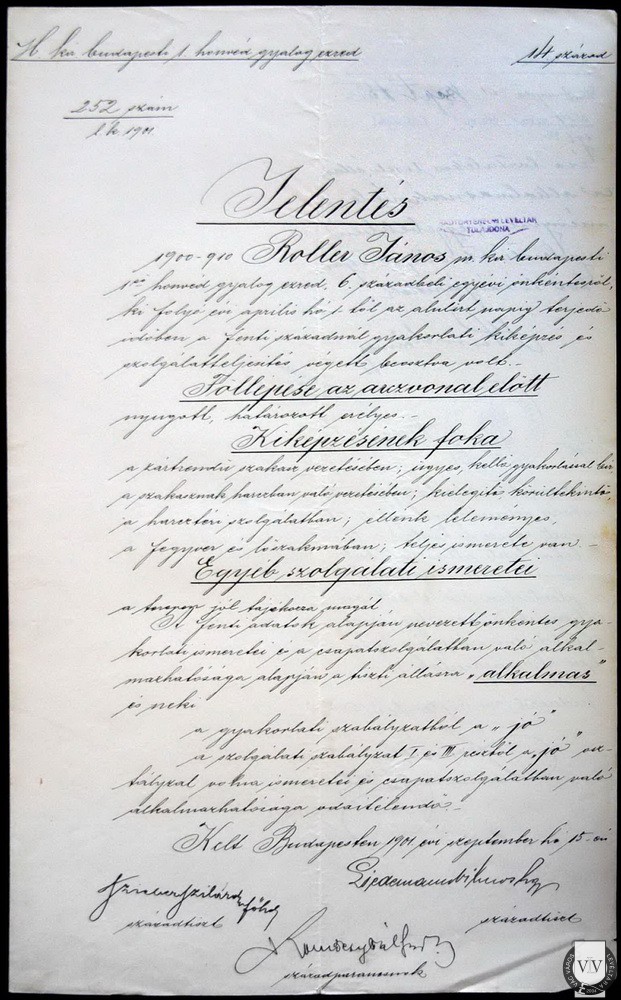 M. kir. budapesti 1. honvéd gyalog ezred
14 század
252 szám
l. k. 1901.
Jelentés
LEVÉLTÁR
TULAJDONA
1900-910 Roller János m. kir. budapesti
1ső honvéd gyalog ezred, 6. századbeli egyévi önkéntesről,
ki folyó évi április hó 1 től az alulírt napig terjedő
időben a fenti századnál gyakorlati kiképzés és
szolgálatteljesítés végett beosztva volt.
Föllépése az arczvonal előtt
nyugott, határozott erélyes.
Kiképzésének foka
a zártrendű szakasz vezetésében; ügyes, kellő gyakorlással bir
a szakasznak harczban való vezetésében; kielégítő, körültekintő,
a harcztéri szolgálatban; élénk leleményes,
a fegyver és lőszakmában; teljes ismerete van.
Egyéb szolgálati ismeretei
a terepen jól tájékozza magát
A fenti adatok alapján nevezett önkéntes gya-
korlati ismeretei és a csapatszolgálatban való alkal-
mazhatósága alapján a tiszti állásra „alkalmas"
és neki
a gyakorlati szabályzatból a „jó"
a szolgálati szabályzat I és III részből a „jó" osz-
tályzat volna ismeretei és csapatszolgálatban való
alkalmazhatósága odaitélendő.
Kelt Budapesten 1901 évi szeptember hó 15-én
századtiszt
századtiszt
századparancsnok
VÁC VÁROS LEVÉLTÁRA
VV